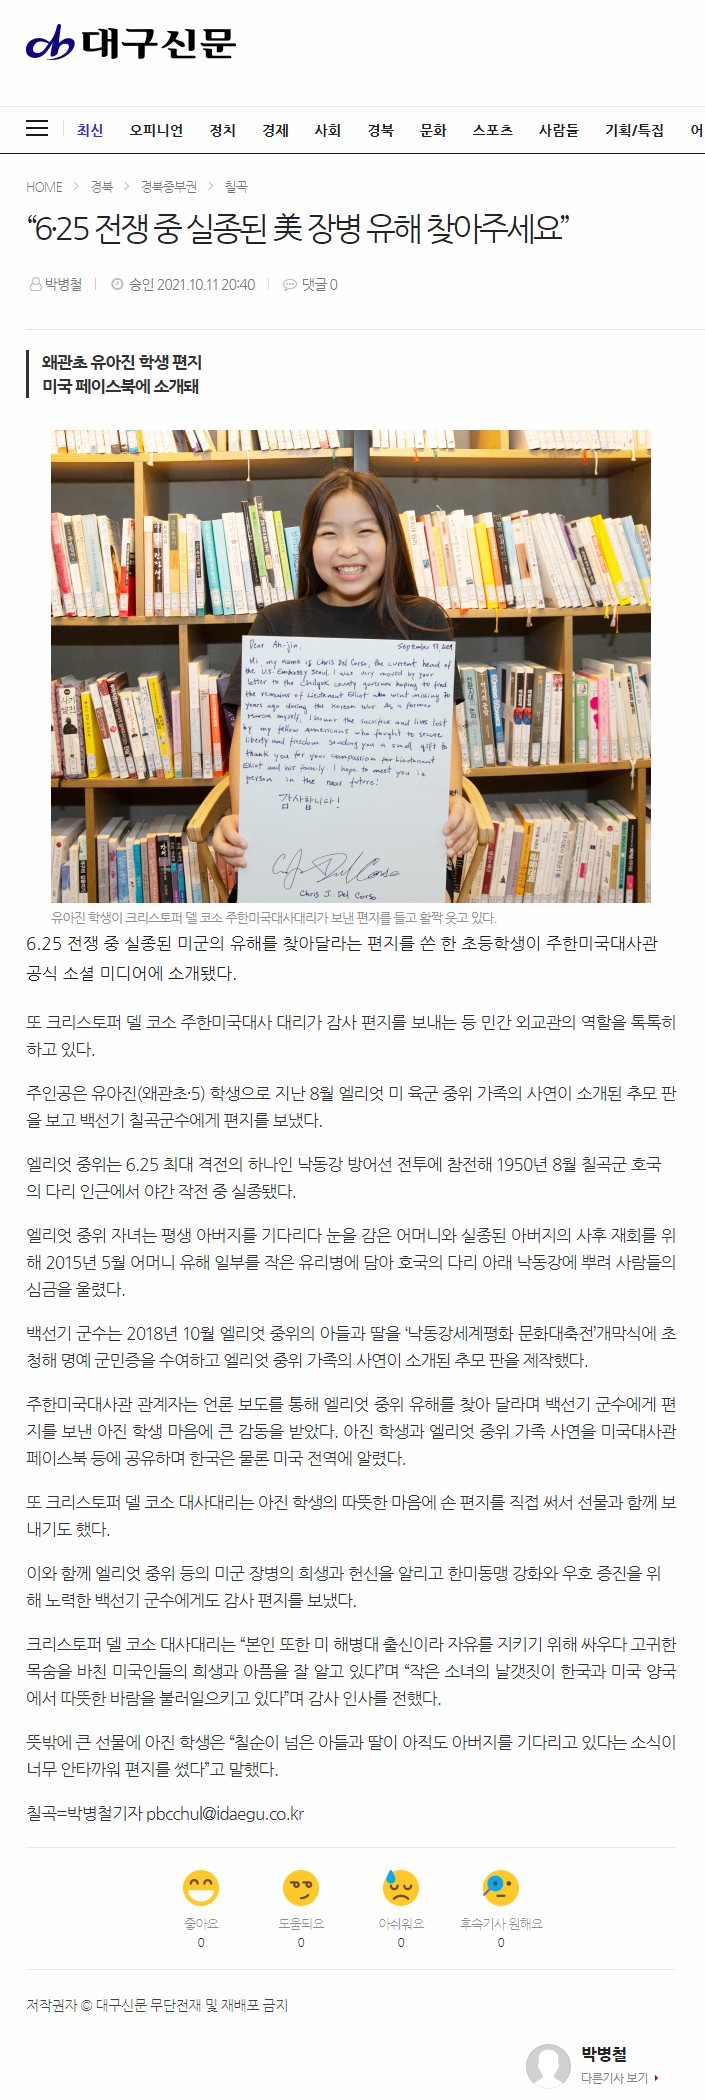 대구신문
최신 오피니언 정치 경제 사회 경북 문화 스포츠 사람들 기획/특집 어
HOME > 경북 > 경북중부권 > 칠곡
“6·25 전쟁 중 실종된 美 장병 유해 찾아주세요”
박병철 | 승인 2021.10.11 20:40 | 댓글 0
왜관초 유아진 학생 편지
미국 페이스북에 소개돼
Dear Ah-jin,
September 17, 2021
Hi, my name is Chris Del Corso, the current head of
the U.S. Embassy Seoul. I was very moved by your
letter to the Chilgok county governor hoping to find
the remains of Lieutenant Elliot who went missing 70
years ago during the Korean War. As a former
Marine myself, I honor the sacrifice and lives lost
by my fellow Americans who fought to secure
liberty and freedom. Sending you a small gift to
thank you for your compassion for Lieutenant
Elliot and his family. I hope to meet you in
person in the near future!
감사합니다!
Chris J. Del Corso
유아진 학생이 크리스토퍼 델 코소 주한미국대사대리가 보낸 편지를 들고 활짝 웃고 있다.
6.25 전쟁 중 실종된 미군의 유해를 찾아달라는 편지를 쓴 한 초등학생이 주한미국대사관
공식 소셜 미디어에 소개됐다.
또 크리스토퍼 델 코소 주한미국대사 대리가 감사 편지를 보내는 등 민간 외교관의 역할을 톡톡히
하고 있다.
주인공은 유아진(왜관초·5) 학생으로 지난 8월 엘리엇 미 육군 중위 가족의 사연이 소개된 추모 판
을 보고 백선기 칠곡군수에게 편지를 보냈다.
엘리엇 중위는 6.25 최대 격전의 하나인 낙동강 방어선 전투에 참전해 1950년 8월 칠곡군 호국
의 다리 인근에서 야간 작전 중 실종됐다.
엘리엇 중위 자녀는 평생 아버지를 기다리다 눈을 감은 어머니와 실종된 아버지의 사후 재회를 위
해 2015년 5월 어머니 유해 일부를 작은 유리병에 담아 호국의 다리 아래 낙동강에 뿌려 사람들의
심금을 울렸다.
백선기 군수는 2018년 10월 엘리엇 중위의 아들과 딸을 ‘낙동강세계평화 문화대축전’개막식에 초
청해 명예 군민증을 수여하고 엘리엇 중위 가족의 사연이 소개된 추모 판을 제작했다.
주한미국대사관 관계자는 언론 보도를 통해 엘리엇 중위 유해를 찾아 달라며 백선기 군수에게 편
지를 보낸 아진 학생 마음에 큰 감동을 받았다. 아진 학생과 엘리엇 중위 가족 사연을 미국대사관
페이스북 등에 공유하며 한국은 물론 미국 전역에 알렸다.
또 크리스토퍼 델 코소 대사대리는 아진 학생의 따뜻한 마음에 손 편지를 직접 써서 선물과 함께 보
내기도 했다.
이와 함께 엘리엇 중위 등의 미군 장병의 희생과 헌신을 알리고 한미동맹 강화와 우호 증진을 위
해 노력한 백선기 군수에게도 감사 편지를 보냈다.
크리스토퍼 델 코소 대사대리는 “본인 또한 미 해병대 출신이라 자유를 지키기 위해 싸우다 고귀한
목숨을 바친 미국인들의 희생과 아픔을 잘 알고 있다”며 “작은 소녀의 날갯짓이 한국과 미국 양국
에서 따뜻한 바람을 불러일으키고 있다”며 감사 인사를 전했다.
뜻밖에 큰 선물에 아진 학생은 “칠순이 넘은 아들과 딸이 아직도 아버지를 기다리고 있다는 소식이
너무 안타까워 편지를 썼다”고 말했다.
칠곡=박병철기자 pbcchul@idaegu.co.kr
좋아요 도움되요 아쉬워요 후속기사 원해요
0 0 0 0
저작권자 © 대구신문 무단전재 및 재배포 금지
박병철
다른기사 보기